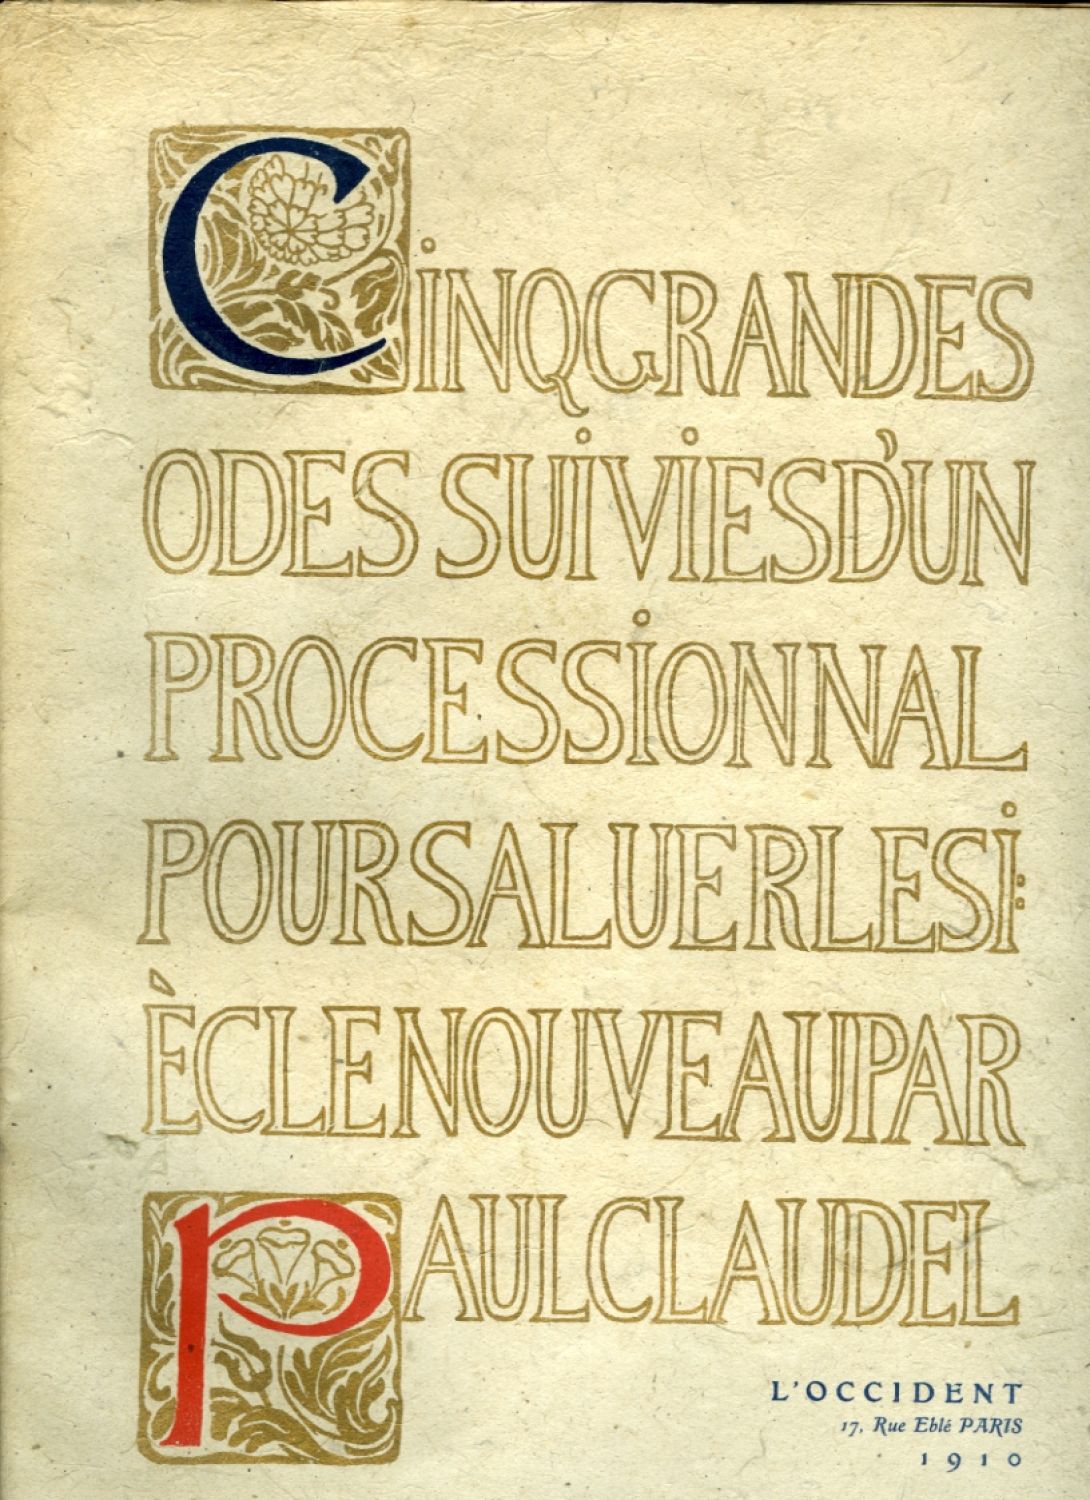 CINQ GRANDES
ODES SUIVIES D'UN
PROCESSIONNAL
POUR SALUER LE SI:
ÈCLE NOUVEAU PAR
PAUL CLAUDEL
L'OCCIDENT
17, Rue Eblé PARIS
1910